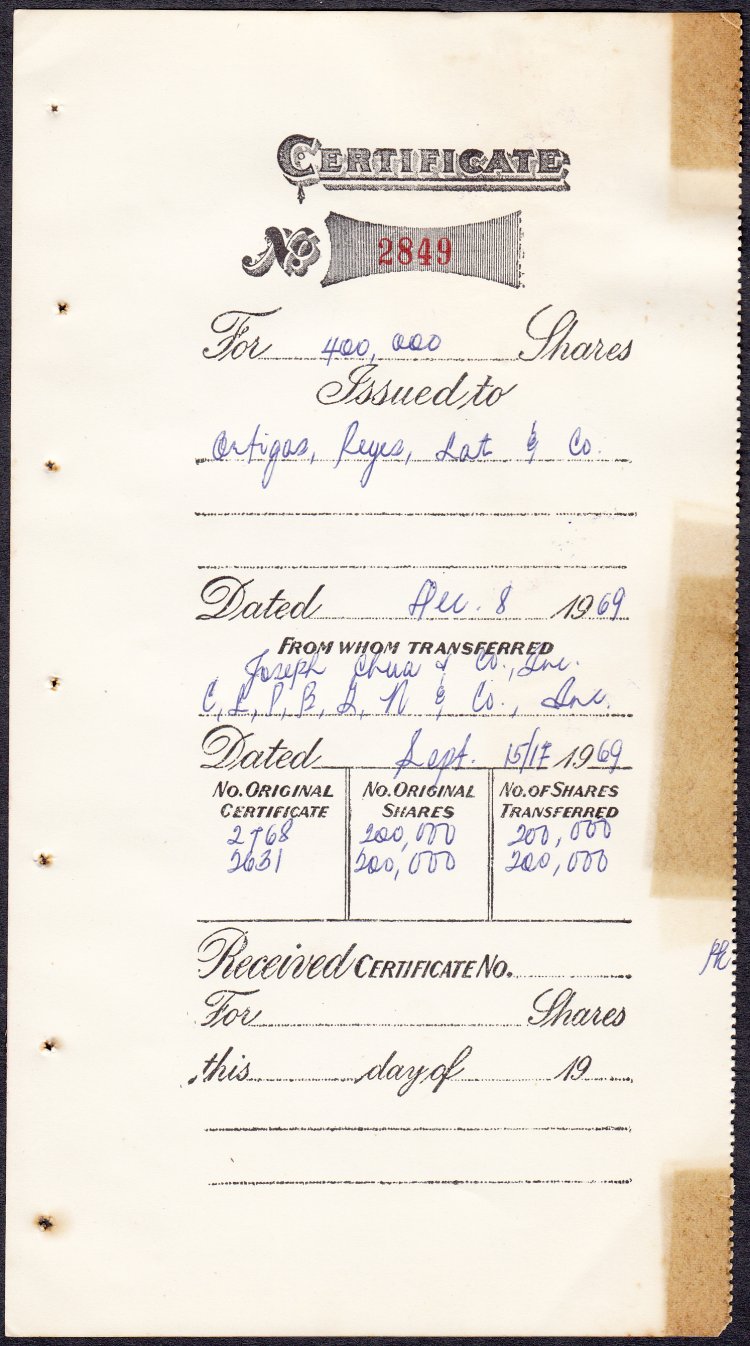 CERTIFICATE
No 2849
For 400,000 Shares
Issued to
Ortigas, Reyes, Lat & Co.
Dated Dec. 8 1969
FROM WHOM TRANSFERRED
Joseph Chua & Co., Inc.
C, L, P, B, G, N & Co., Inc.
Dated Sept. 15/17 1969
NO. ORIGINAL CERTIFICATE NO. ORIGINAL SHARES NO. OF SHARES TRANSFERRED
200,000 200,000
2631 200,000 200,000
Received CERTIFICATE NO.
For Shares
this day of 19